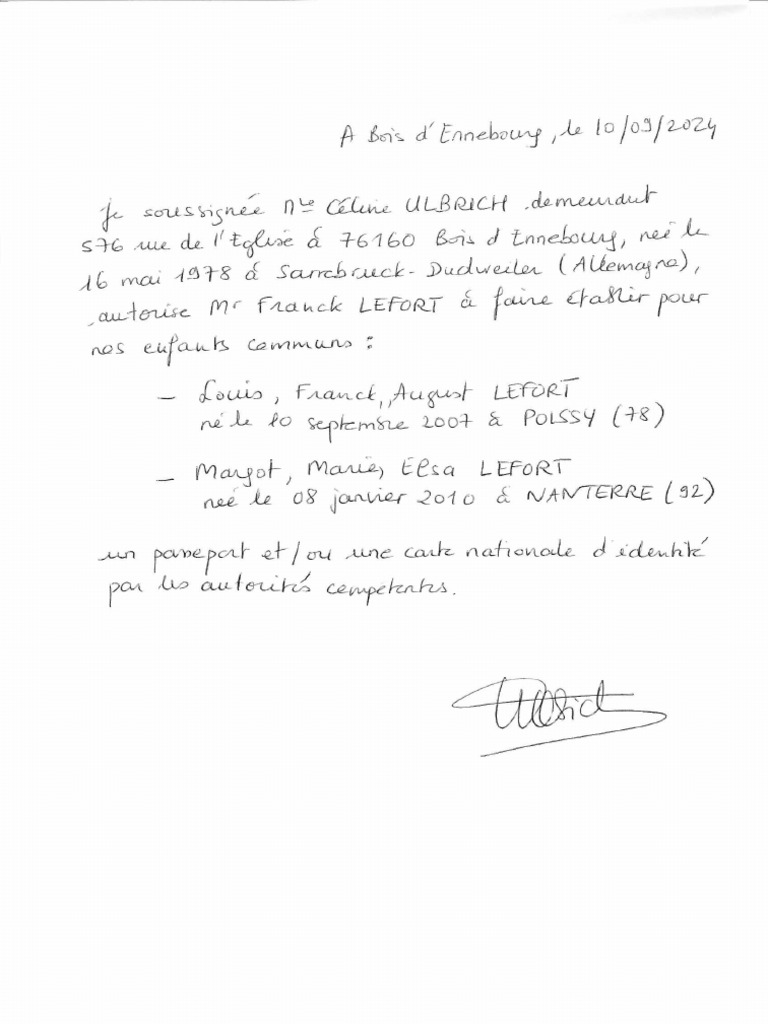 A Bois d'Ennebourg, le 10/09/2024
Je soussignée Mle Céline ULBRICH demeurant
576 rue de l'Eglise à 76160 Bois d'Ennebourg, née le
16 mai 1978 à Sarrebruck-Dudweiler (Allemagne),
autorise Mr Franck LEFORT à faire établir pour
nos enfants communs :
- Louis, Franck, August LEFORT
né le 10 septembre 2007 à POISSY (78)
- Margot, Marie, Elsa LEFORT
née le 08 janvier 2010 à NANTERRE (92)
un passeport et/ou une carte nationale d'identité
par les autorités compétentes.
Ulbrich